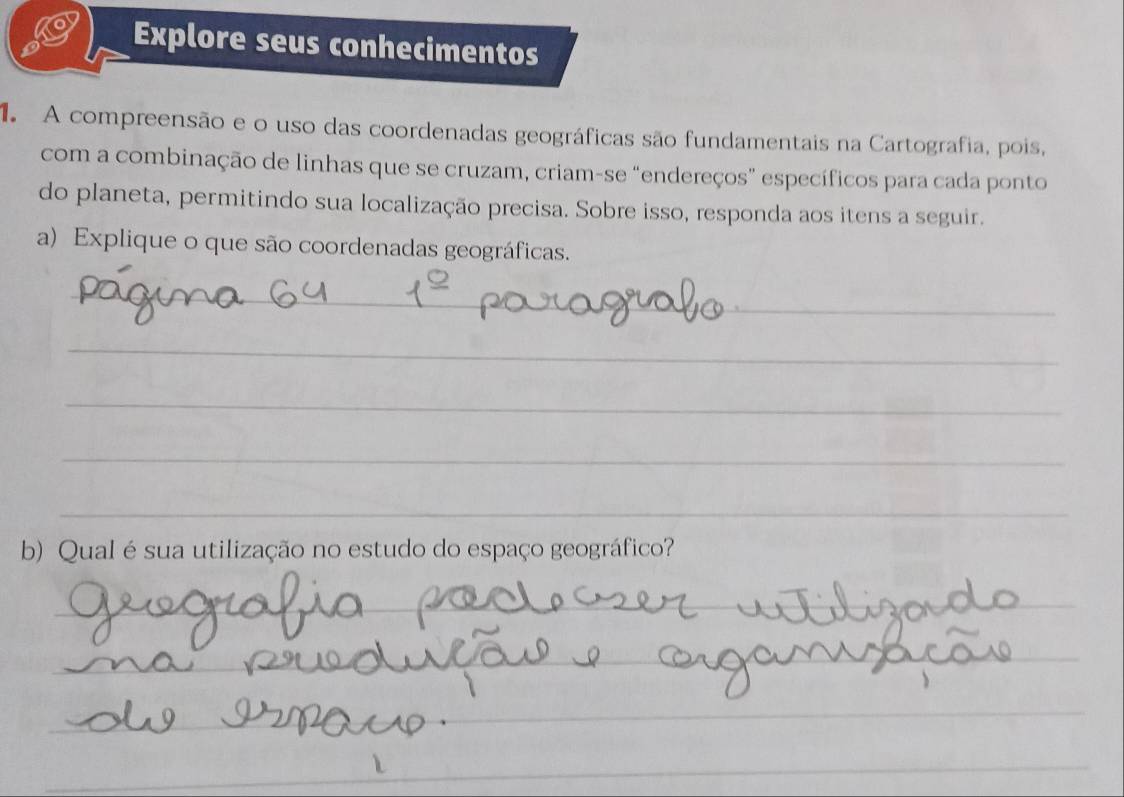 Explore seus conhecimentos
1. A compreensão e o uso das coordenadas geográficas são fundamentais na Cartografia, pois,
com a combinação de linhas que se cruzam, criam-se “endereços” específicos para cada ponto
do planeta, permitindo sua localização precisa. Sobre isso, responda aos itens a seguir.
a) Explique o que são coordenadas geográficas.
página 64 1º paragrafo.
b) Qual é sua utilização no estudo do espaço geográfico?
geografia pode ser utilizado
na produção e organização
do espaço.